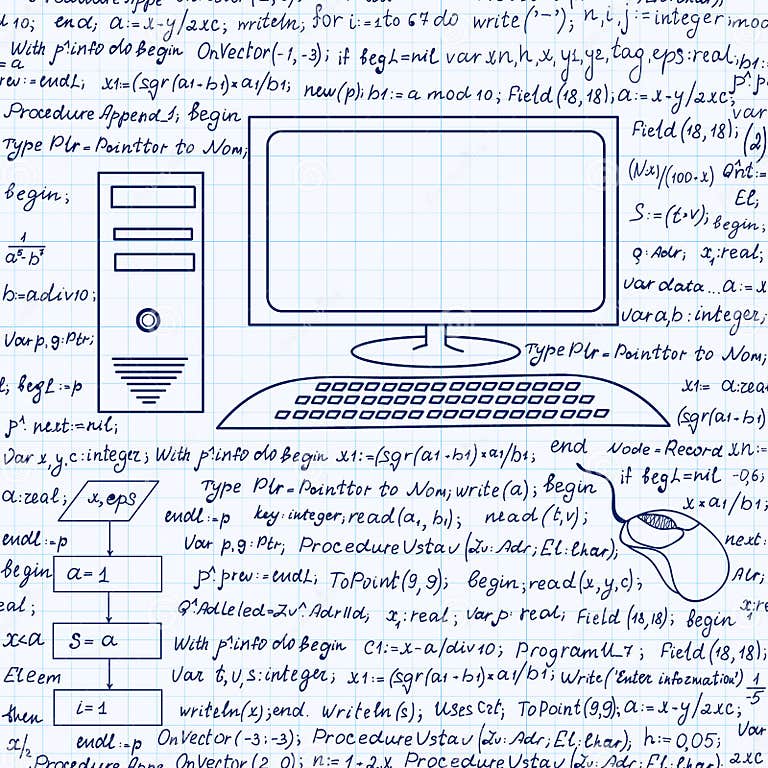 10; end; a:=x-y/2xc; writeln; for i:=1 to 67 do write('-'); n,i,j:=integer; mod
With p^.info do Begin OnVector(-1,-3); if begL=nil var xn,h,x,y1,y2,tag,eps:real; b1:=
= a
rev:=endL; x1:=(sgr(a1-b1)*a1/b1; new(p); b1:=a mod 10; Field(18,18); a:=x-y/2xc;
Procedure Append_1; Begin
var
Type Plr=Pointtor to Nom;
Field(18,18); (2)
(Nx)/(100·x) Q^nt:=
begin;
El;
S:=(t>v); begin;
1
a⁵-b⁷
Q:Adr; x1:real;
b:=a div 10;
var data...a:=x
var a,b:integer;
Var p,g:Ptr;
Type Plr=Pointtor to Nom;
begL:=p
x1:= a:rea
p^. next:=nil;
(sgr(a1-b1)
Var x,y,c:integer; With p^.info do Begin x1:=(sgr(a1-b1)*a1/b1; end Node=Record xn:=
if begL=nil -0,6;
a:real; x,eps Type Plr=Pointtor to Nom; write(a); begin
x*a1/b1;
endl:=p key:integer; read(a1,b1); read(t,v);
endl:=p Var p,g:Ptr; Procedure Ustav(Zv:Adr; El:Char); next:
begin a=1 p^.prev:=endL; ToPoint(9,9); begin; read(x,y,c); Alr;
eal; Q^AdLeled=Zv^.AdrIId; x1:real; Var p:real; Field(18,18); begin
x<a S=a With p^.info do Begin C1:=x-a/div10; Program U_7; Field(18,18);
Eleem Var t,v,s:integer; x1:=(sgr(a1-b1)*a1/b1; Write('Enter information') 1/5
then i=1 writeln(x); end. writeln(s); Uses Crt; ToPoint(9,9); a:=x-y/2xc;
x/2 endl:=p OnVector(-3;-3); Procedure Ustav(Zv:Adr; El:Char); h:=0,05; Var
Procedure OnVector(2,0); n:=1+2·x Procedure Ustav(Zv:Adr; El:Char); 2xc